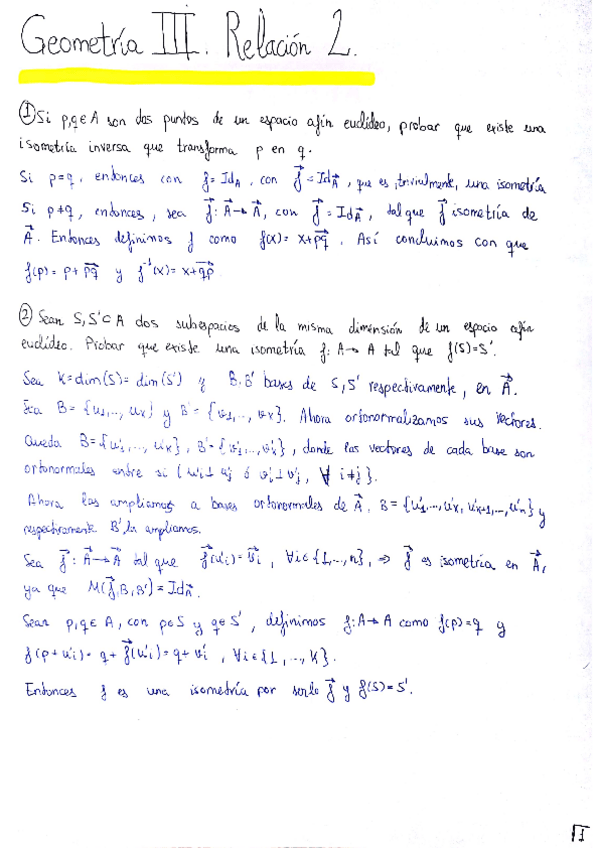 Geometría III. Relación 2.
① Si p,q∈A son dos puntos de un espacio afín euclídeo, probar que existe una
isometría inversa que transforma p en q.
Si p=q, entonces con f=Id_A, con f⃗=Id_A⃗, que es, trivialmente, una isometría
Si p≠q, entonces, sea f⃗: A⃗→A⃗, con f⃗=Id_A⃗, tal que f⃗ isometría de
A⃗. Entonces definimos f como f(x)= x+p͞q⃗. Así concluimos con que
f(p)= p+pq⃗ y f⁻¹(x)= x+qp⃗
② Sean S,S'⊂A dos subespacios de la misma dimensión de un espacio afín
euclídeo. Probar que existe una isometría f: A→A tal que f(S)=S'.
Sea K=dim(S)=dim(S') y B,B' bases de S,S' respectivamente, en A⃗.
Sea B={u₁,..,uₖ} y B'={v₁,..,vₖ}. Ahora ortonormalizamos sus vectores.
Queda B={u'₁,..,u'ₖ}, B'={v'₁,..,v'ₖ}, donde los vectores de cada base son
ortonormales entre si (u'ᵢ⊥u'ⱼ ó v'ᵢ⊥v'ⱼ, ∀ i≠j}.
Ahora las ampliamos a bases ortonormales de A⃗, B={u'₁,..,u'ₖ,u'ₖ₊₁,..,u'ₙ} y
respectivamente B' la ampliamos.
Sea f⃗: A⃗→A⃗ tal que f⃗(u'ᵢ)=v⃗ᵢ, ∀i∈{1,..,n}, ⇒ f⃗ es isometría en A⃗,
ya que M(f⃗,B,B')=Id_A⃗.
Sean p,q∈A, con p∈S y q∈S', definimos f:A→A como f(p)=q y
f(p+u'ᵢ)= q+f⃗(u'ᵢ)= q+v'ᵢ, ∀i∈{1,..,K}.
Entonces f es una isometría por serlo f⃗ y f(S)=S'.